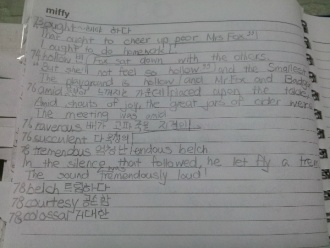 miffy
ought ~해야 하다
They ought to cheer up poor Mrs Fox
I ought to do homework
74 hollow Fox sat down with the others.
But she not feel so hollow and the smallest
The playground is hollow and Mr Fox and
76 amid placed upon the table
Amid shouts of joy, the great jars of cider were
The meeting was
76 ravenous 배가 고파 죽을 지경이
76 succulent 다
78 tremendous 엄청난 tremendous belch
In the silence that followed, he let fly a
The sound tremendously loud!
78 belch 트림하다
78 courtesy 공손함
78 colossal 거대한